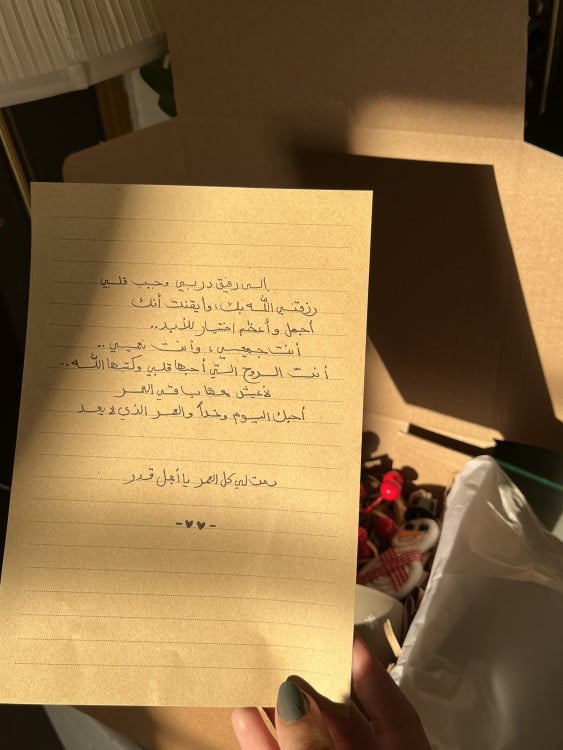 إلى رفيق دربي وحبيب قلبي
رزقني الله بك، وأيقنت أنك
أجمل وأعظم اختيار للأبد..
أنت جميعي، وأنت نعمتي..
أنت الروح التي أحبها قلبي وكتبها الله..
لأعيش معها باقي العمر
أحبك اليوم وغداً والعمر الذي لا يعد
دمت لي كل العمر يا أجمل قدر
-♥♥-